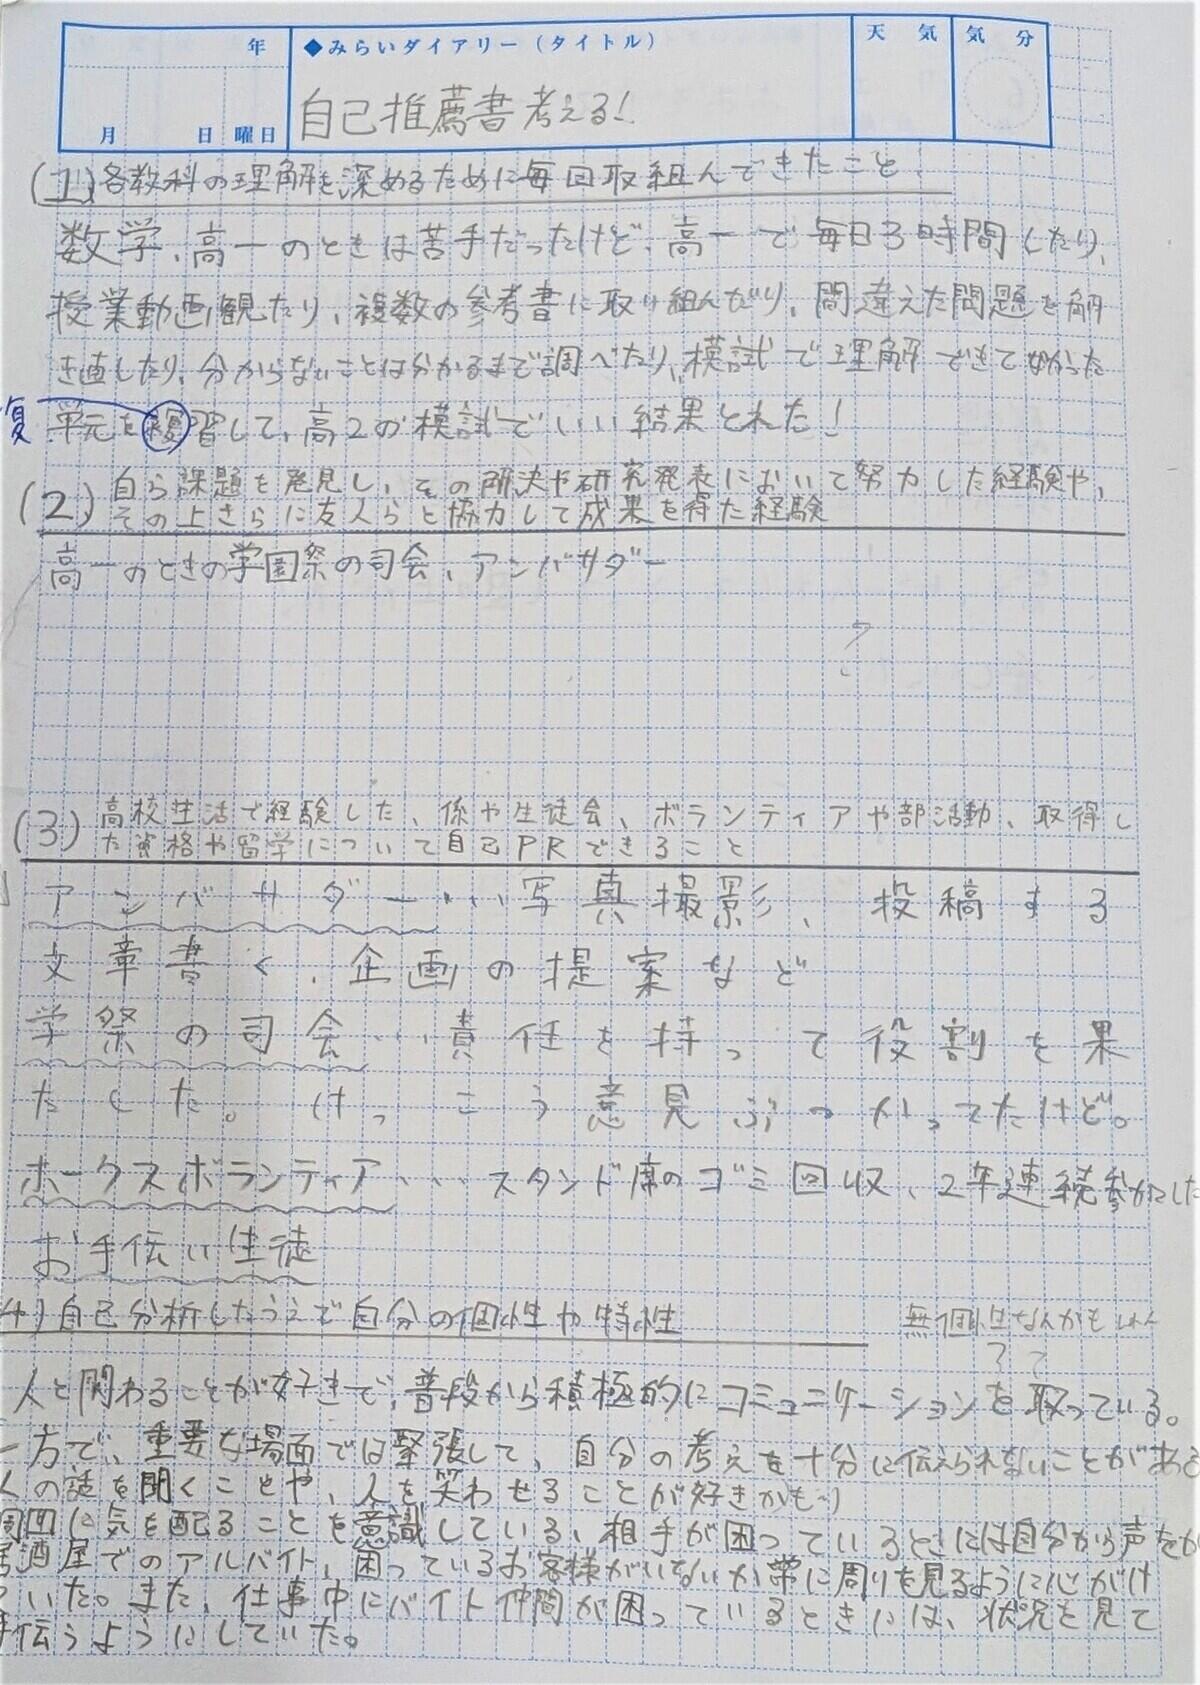 年
◆みらいダイアリー（タイトル）
天気
気分
月 日 曜日
自己推薦書考える！
(1) 各教科の理解を深めるために毎回取組んできたこと、
数学、高一のときは苦手だったけど、高一で毎日3時間したり、
授業動画観たり、複数の参考書に取り組んだり、間違えた問題を解
き直したり、分からないことは分かるまで調べたり、模試で理解できてなかった
復 単元を複習して、高2の模試でいい結果とれた！
(2) 自ら課題を発見し、その解決や研究発表において努力した経験や、
その上さらに友人らと協力して成果を得た経験
高一のときの学園祭の司会、アンバサダー
？
(3) 高校生活で経験した、係や生徒会、ボランティアや部活動、取得し
た資格や留学について自己PRできること
アンバサダー・・・写真撮影、投稿する
文章書く、企画の提案など
学祭の司会・・・責任を持って役割を果
たした。けっこう意見ぶつかってたけど。
ホークスボランティア・・・スタンド席のゴミ回収、2年連続参加した
お手伝い生徒
4) 自己分析したうえで自分の個性や特性
無個性なんかもしれん
？？
人と関わることが好きで、普段から積極的にコミュニケーションを取っている。
一方で、重要な場面では緊張して、自分の考えを十分に伝えられないことがある
人の話を聞くことや、人を笑わせることが好きかも〜)
周囲に気を配ることを意識している、相手が困っているときには自分から声をか
居酒屋でのアルバイト、困っているお客様がいないか常に周りを見るように心がけ
ていた。また、仕事中にバイト仲間が困っているときには、状況を見て
手伝うようにしていた。